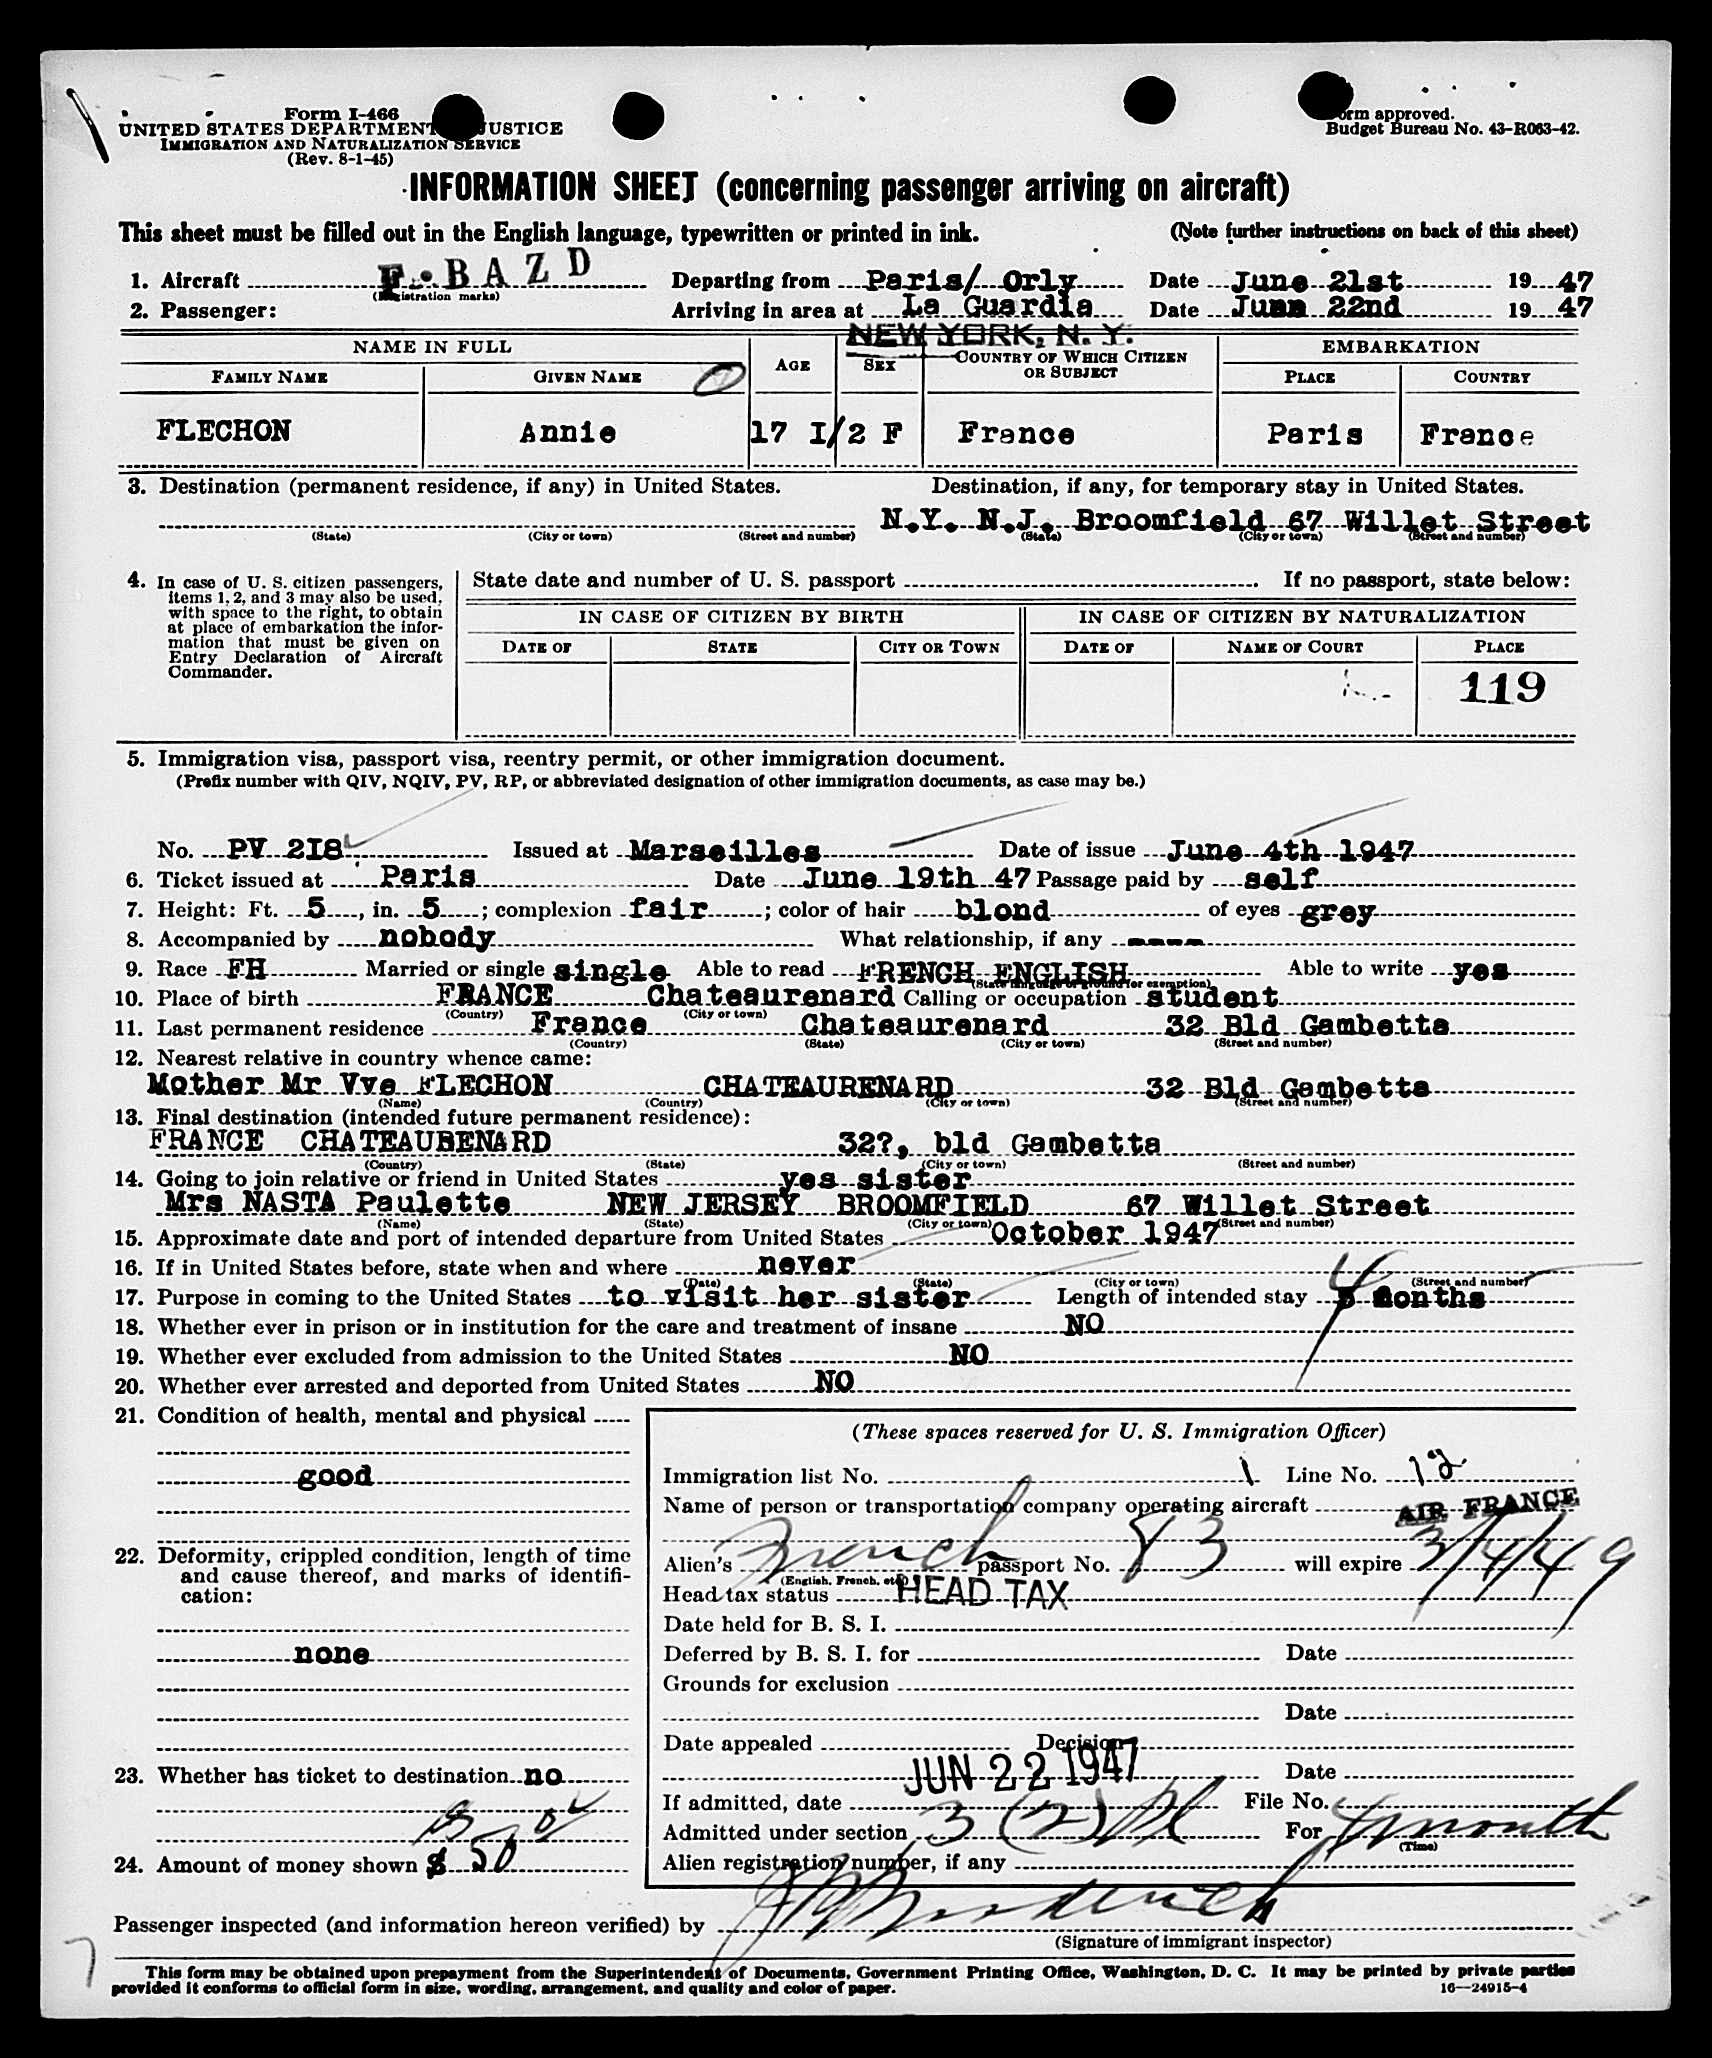 Form I-466
UNITED STATES DEPARTMENT JUSTICE
IMMIGRATION AND NATURALIZATION SERVICE
(Rev. 8-1-45)
Form approved.
Budget Bureau No. 43-R063-42.
INFORMATION SHEET (concerning passenger arriving on aircraft)
This sheet must be filled out in the English language, typewritten or printed in ink. (Note further instructions on back of this sheet)
1. Aircraft F.BAZD Departing from Paris/ Orly Date June 21st 1947
(Registration marks)
2. Passenger: Arriving in area at La Guardia Date June 22nd 1947
NEW YORK, N. Y.
NAME IN FULL AGE SEX COUNTRY OF WHICH CITIZEN OR SUBJECT EMBARKATION
FAMILY NAME GIVEN NAME PLACE COUNTRY
FLECHON Annie 17 I/2 F France Paris France
3. Destination (permanent residence, if any) in United States. Destination, if any, for temporary stay in United States.
N.Y. N.J. Broomfield 67 Willet Street
(State) (City or town) (Street and number) (State) (City or town) (Street and number)
4. In case of U. S. citizen passengers, items 1, 2, and 3 may also be used, with space to the right, to obtain at place of embarkation the information that must be given on Entry Declaration of Aircraft Commander.
State date and number of U. S. passport . If no passport, state below:
IN CASE OF CITIZEN BY BIRTH IN CASE OF CITIZEN BY NATURALIZATION
DATE OF STATE CITY OR TOWN DATE OF NAME OF COURT PLACE
119
5. Immigration visa, passport visa, reentry permit, or other immigration document.
(Prefix number with QIV, NQIV, PV, RP, or abbreviated designation of other immigration documents, as case may be.)
No. PV 2I8 Issued at Marseilles Date of issue June 4th 1947
6. Ticket issued at Paris Date June 19th 47 Passage paid by self
7. Height: Ft. 5, in. 5; complexion fair; color of hair blond of eyes grey
8. Accompanied by nobody What relationship, if any ----
9. Race FH Married or single single Able to read FRENCH ENGLISH Able to write yes
(State language or ground for exemption)
10. Place of birth FRANCE Chateaurenard Calling or occupation student
(Country) (City or town)
11. Last permanent residence France Chateaurenard 32 Bld Gambetta
(Country) (State) (City or town) (Street and number)
12. Nearest relative in country whence came:
Mother Mr Vve FLECHON CHATEAURENARD 32 Bld Gambetta
(Name) (Country) (City or town) (Street and number)
13. Final destination (intended future permanent residence):
FRANCE CHATEAUBENARD 32?, bld Gambetta
(Country) (State) (City or town) (Street and number)
14. Going to join relative or friend in United States yes sister
Mrs NASTA Paulette NEW JERSEY BROOMFIELD 67 Willet Street
(Name) (State) (City or town) (Street and number)
15. Approximate date and port of intended departure from United States October 1947
16. If in United States before, state when and where never
(Date) (State) (City or town) (Street and number)
17. Purpose in coming to the United States to visit her sister Length of intended stay 4 months
18. Whether ever in prison or in institution for the care and treatment of insane NO
19. Whether ever excluded from admission to the United States NO
20. Whether ever arrested and deported from United States NO
21. Condition of health, mental and physical
good
22. Deformity, crippled condition, length of time
and cause thereof, and marks of identifi-
cation:
none
23. Whether has ticket to destination no
24. Amount of money shown $ 50
(These spaces reserved for U. S. Immigration Officer)
Immigration list No. 1 Line No. 12
Name of person or transportation company operating aircraft AIR FRANCE
Alien's French passport No. 83 will expire 3/4/49
(English, French, etc.)
Head tax status HEAD TAX
Date held for B. S. I.
Deferred by B. S. I. for Date
Grounds for exclusion
Date
Date appealed Decision
Date
If admitted, date JUN 22 1947 File No.
Admitted under section 3(2) For 4 month
(Time)
Alien registration number, if any
Passenger inspected (and information hereon verified) by
(Signature of immigrant inspector)
This form may be obtained upon prepayment from the Superintendent of Documents, Government Printing Office, Washington, D. C. It may be printed by private parties
provided it conforms to official form in size, wording, arrangement, and quality and color of paper. 16—24915-4